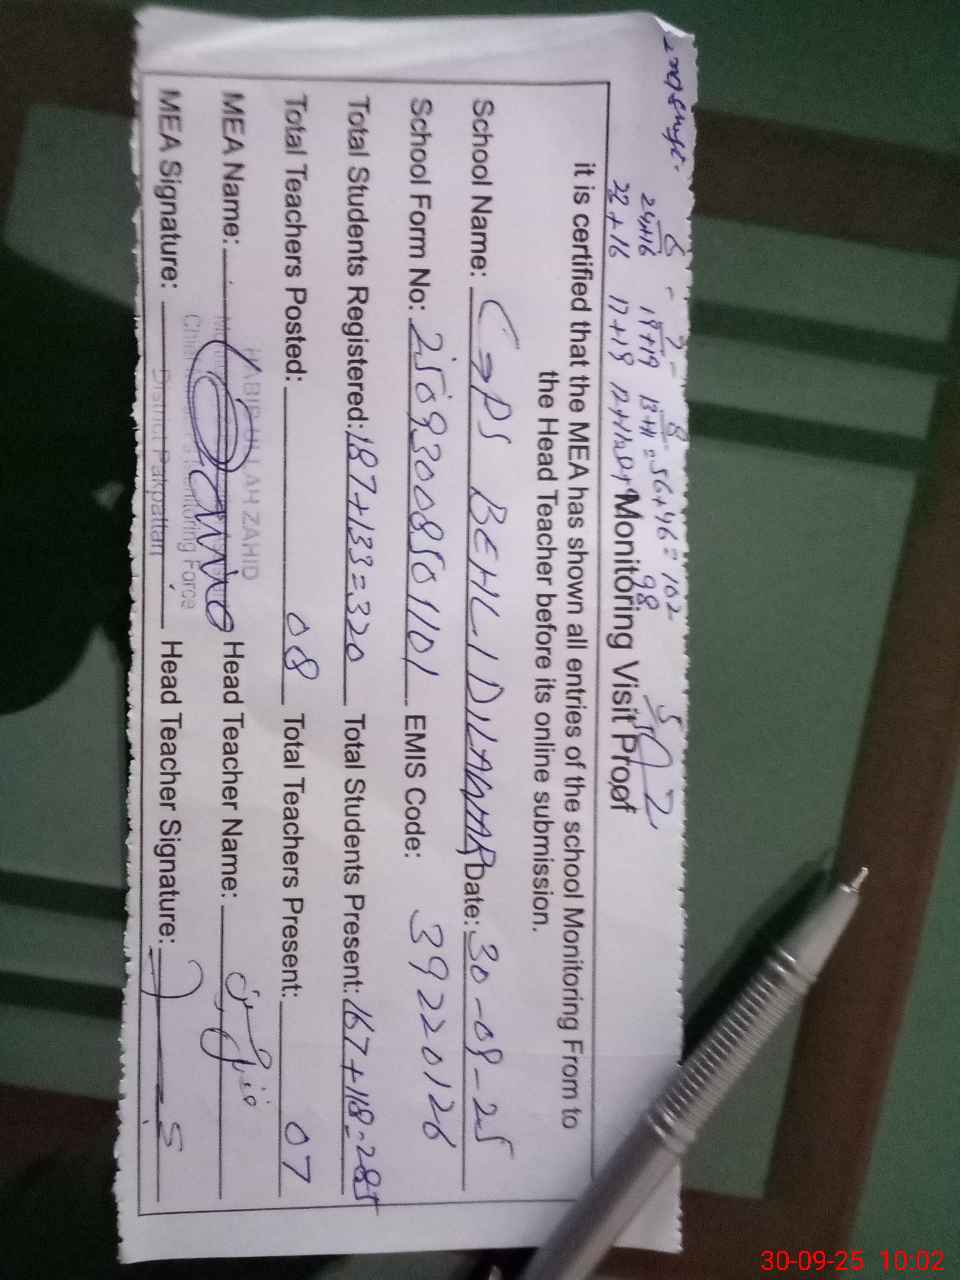 2nd shift.
6 - 7 - 8
24+16 19+19 13+11 = 56+46 = 102
22+16 17+19 98
Monitoring Visit Proof
it is certified that the MEA has shown all entries of the school Monitoring From to
the Head Teacher before its online submission.
School Name: GPS BEHLI DILAWAR Date: 30-09-25
School Form No: 25093008501101 EMIS Code: 39220126
Total Students Registered: 187+133=320 Total Students Present: 167+118=285
Total Teachers Posted: 08 Total Teachers Present: 07
MEA Name: HABIB ULLAH ZAHID Head Teacher Name:
Monitoring Force
MEA Signature: District Pakpattan Head Teacher Signature:
30-09-25 10:02